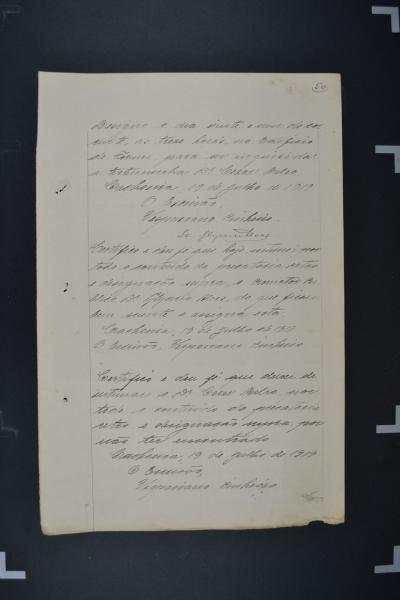 50
Designo o dia vinte e um do cor
rente, ás treze horas, no Edificio
do Forum, para ser inquirida
a testemunha Dr. Cesar
Cachoeira, 19 de Julho de 1919
O Escrivão,
Vespasiano Pinheiro
Certifico e dou fé que hoje intimei
todo o conteúdo da precatoria retro
e designação supra, o Promotor Pu
blico Dr. Glycerio, do que ficou
bem sciente e assigna nota.
Cachoeira, 19 de Julho de 1919
O Escrivão, Vespasiano Pinheiro
Certifico e dou fé que deixei de
intimar o Dr. Cesar
o conteúdo da precatoria
retro e designação supra por
não ter encontrado
Cachoeira, 19 de Julho de 1919
O Escrivão,
Vespasiano Pinheiro